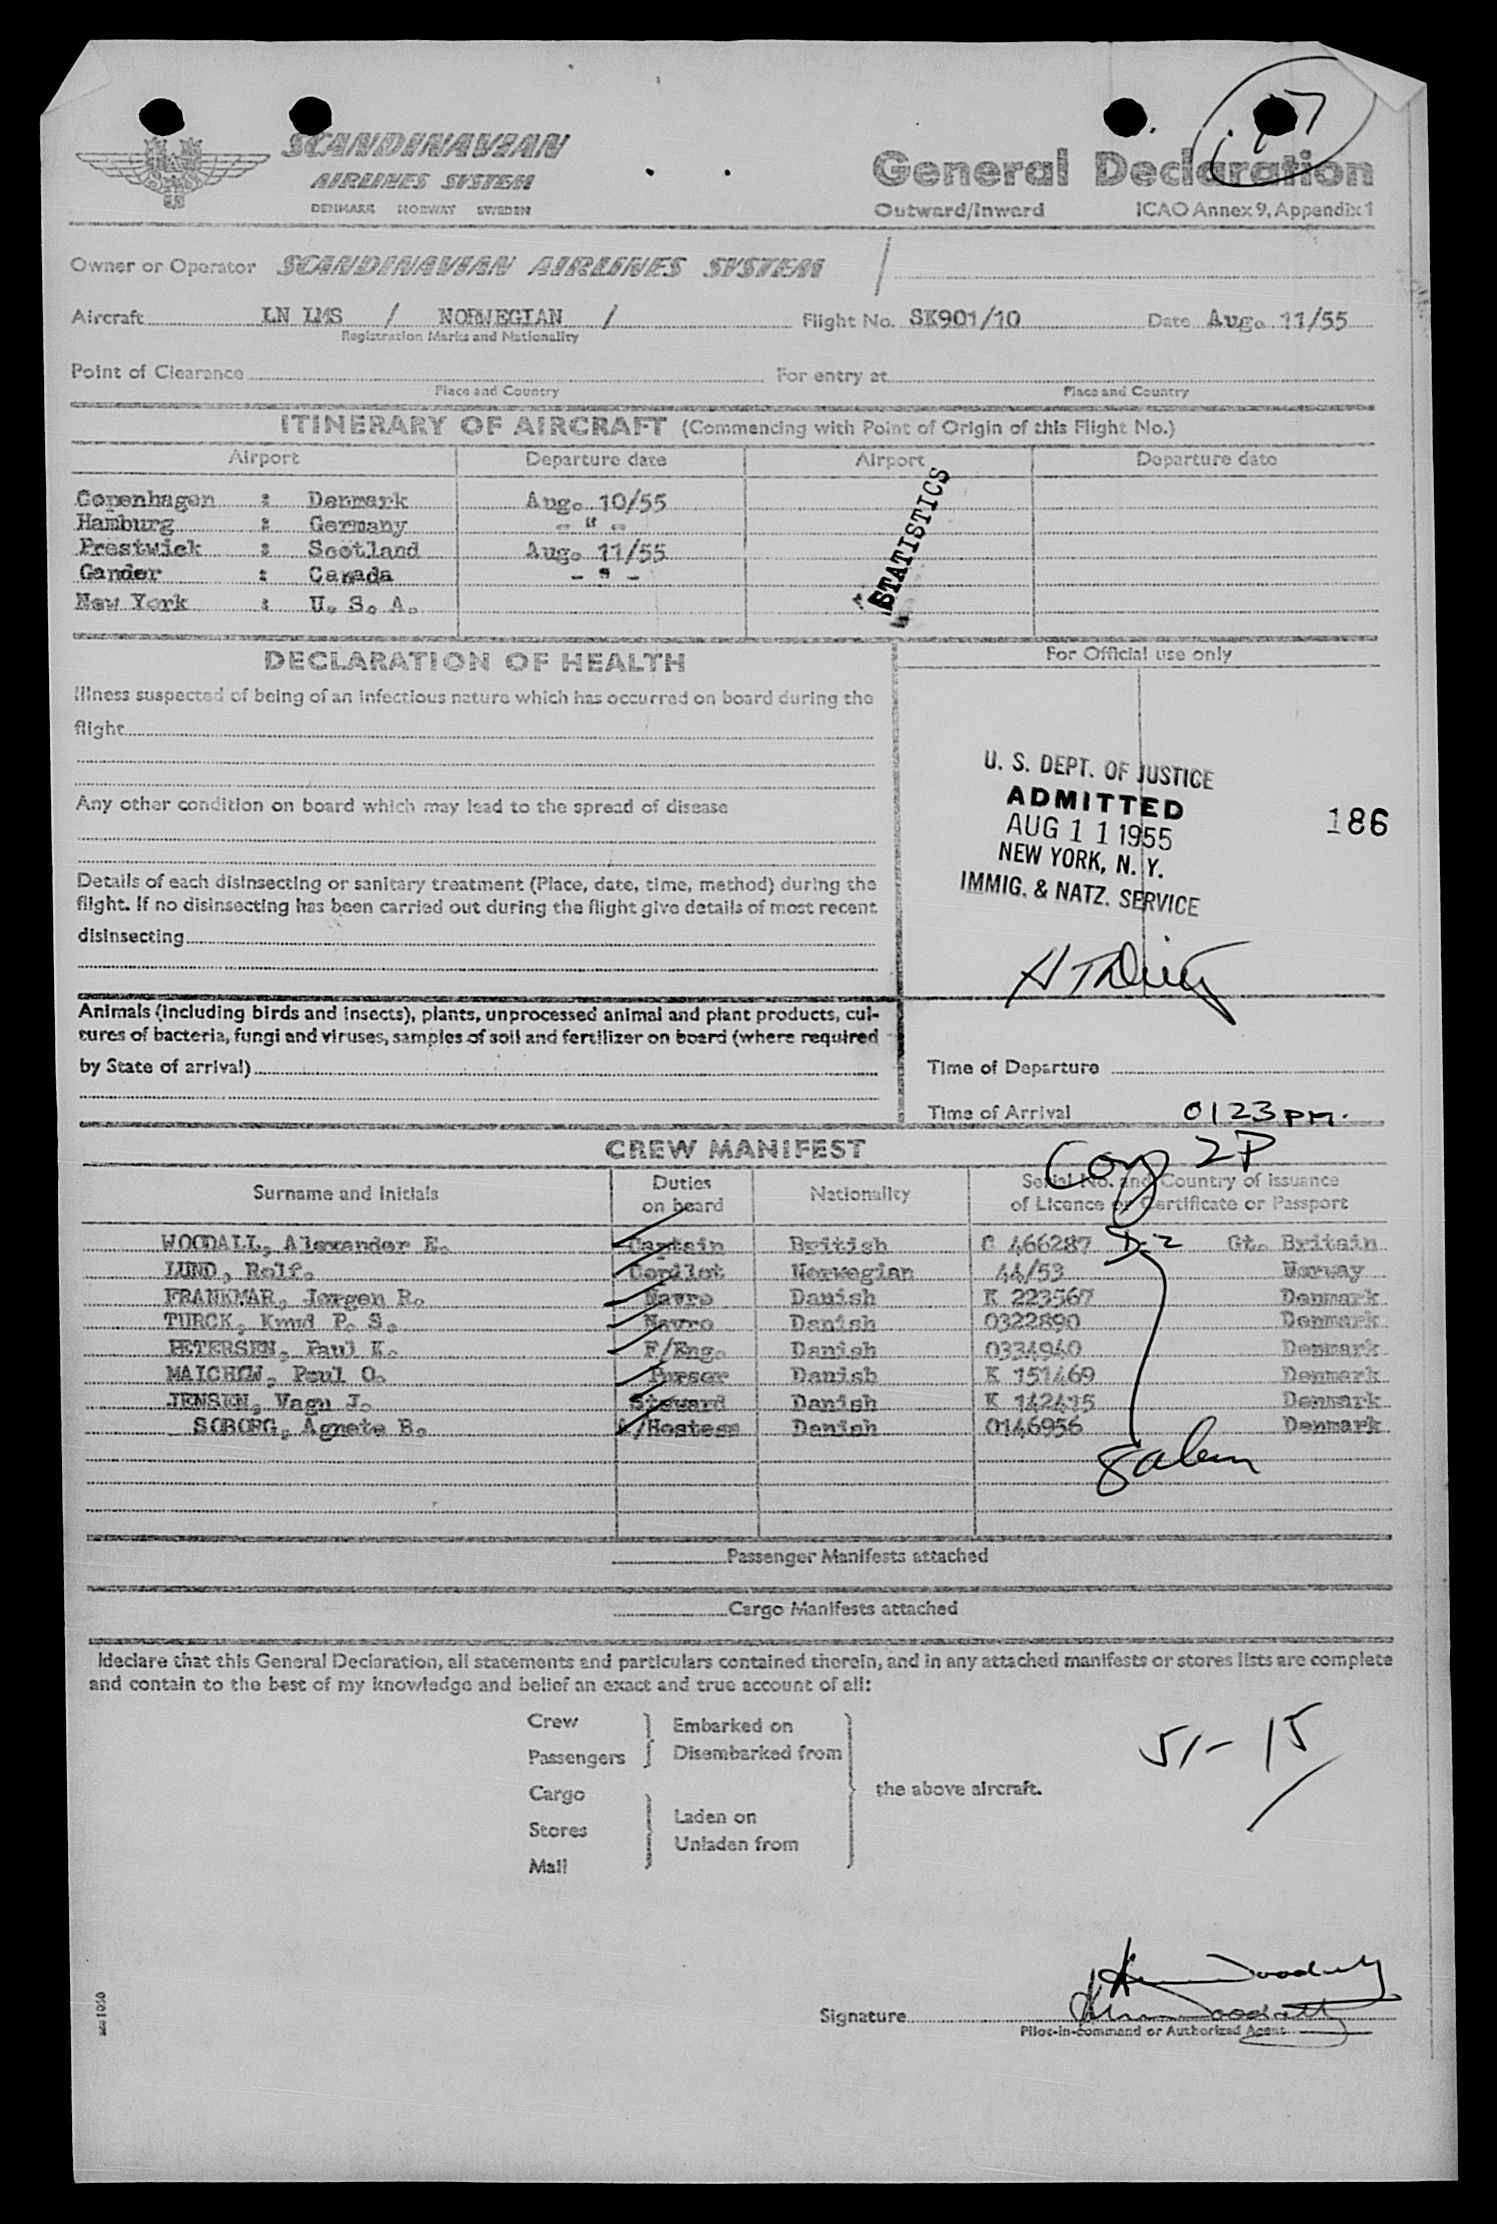 SCANDINAVIAN
AIRLINES SYSTEM
DENMARK NORWAY SWEDEN
General Declaration
Outward/Inward ICAO Annex 9, Appendix 1
Owner or Operator SCANDINAVIAN AIRLINES SYSTEM /
Aircraft LN LMS / NORWEGIAN / Flight No. SK901/10 Date Aug. 11/55
Registration Marks and Nationality
Point of Clearance For entry at
Place and Country Place and Country
ITINERARY OF AIRCRAFT (Commencing with Point of Origin of this Flight No.)
Airport Departure date Airport Departure date
Copenhagen : Denmark Aug. 10/55
Hamburg : Germany - " -
Prestwick : Scotland Aug. 11/55
Gander : Canada - " -
New York : U. S. A.
STATISTICS
DECLARATION OF HEALTH
Illness suspected of being of an infectious nature which has occurred on board during the
flight
Any other condition on board which may lead to the spread of disease
Details of each disinsecting or sanitary treatment (Place, date, time, method) during the
flight. If no disinsecting has been carried out during the flight give details of most recent
disinsecting
Animals (including birds and insects), plants, unprocessed animal and plant products, cul-
tures of bacteria, fungi and viruses, samples of soil and fertilizer on board (where required
by State of arrival)
For Official use only
U. S. DEPT. OF JUSTICE
ADMITTED
AUG 11 1955
NEW YORK, N. Y.
IMMIG. & NATZ. SERVICE
186
Time of Departure
Time of Arrival 0123 PM.
2P
CREW MANIFEST
Surname and Initials Duties on board Nationality Serial No. and Country of issuance of Licence or Certificate or Passport
WOODALL, Alexander E. Captain British C 466287 Gt. Britain
LUND, Rolf. Copilot Norwegian 44/53 Norway
FRANKMAR, Jørgen R. Navro Danish K 223567 Denmark
TURCK, Knud P. S. Navro Danish 0322890 Denmark
PETERSEN, Paul K. F/Eng. Danish 0334940 Denmark
MAICHIN, Poul O. Purser Danish K 151469 Denmark
JENSEN, Vagn J. Steward Danish K 142415 Denmark
SOBORG, Agnete B. A/Hostess Danish 0146956 Denmark
Passenger Manifests attached
Cargo Manifests attached
I declare that this General Declaration, all statements and particulars contained therein, and in any attached manifests or stores lists are complete
and contain to the best of my knowledge and belief an exact and true account of all:
Crew Embarked on
Passengers Disembarked from
the above aircraft.
Cargo
Laden on
Stores
Unladen from
Mail
51-15
Signature
Pilot-in-command or Authorized Agent